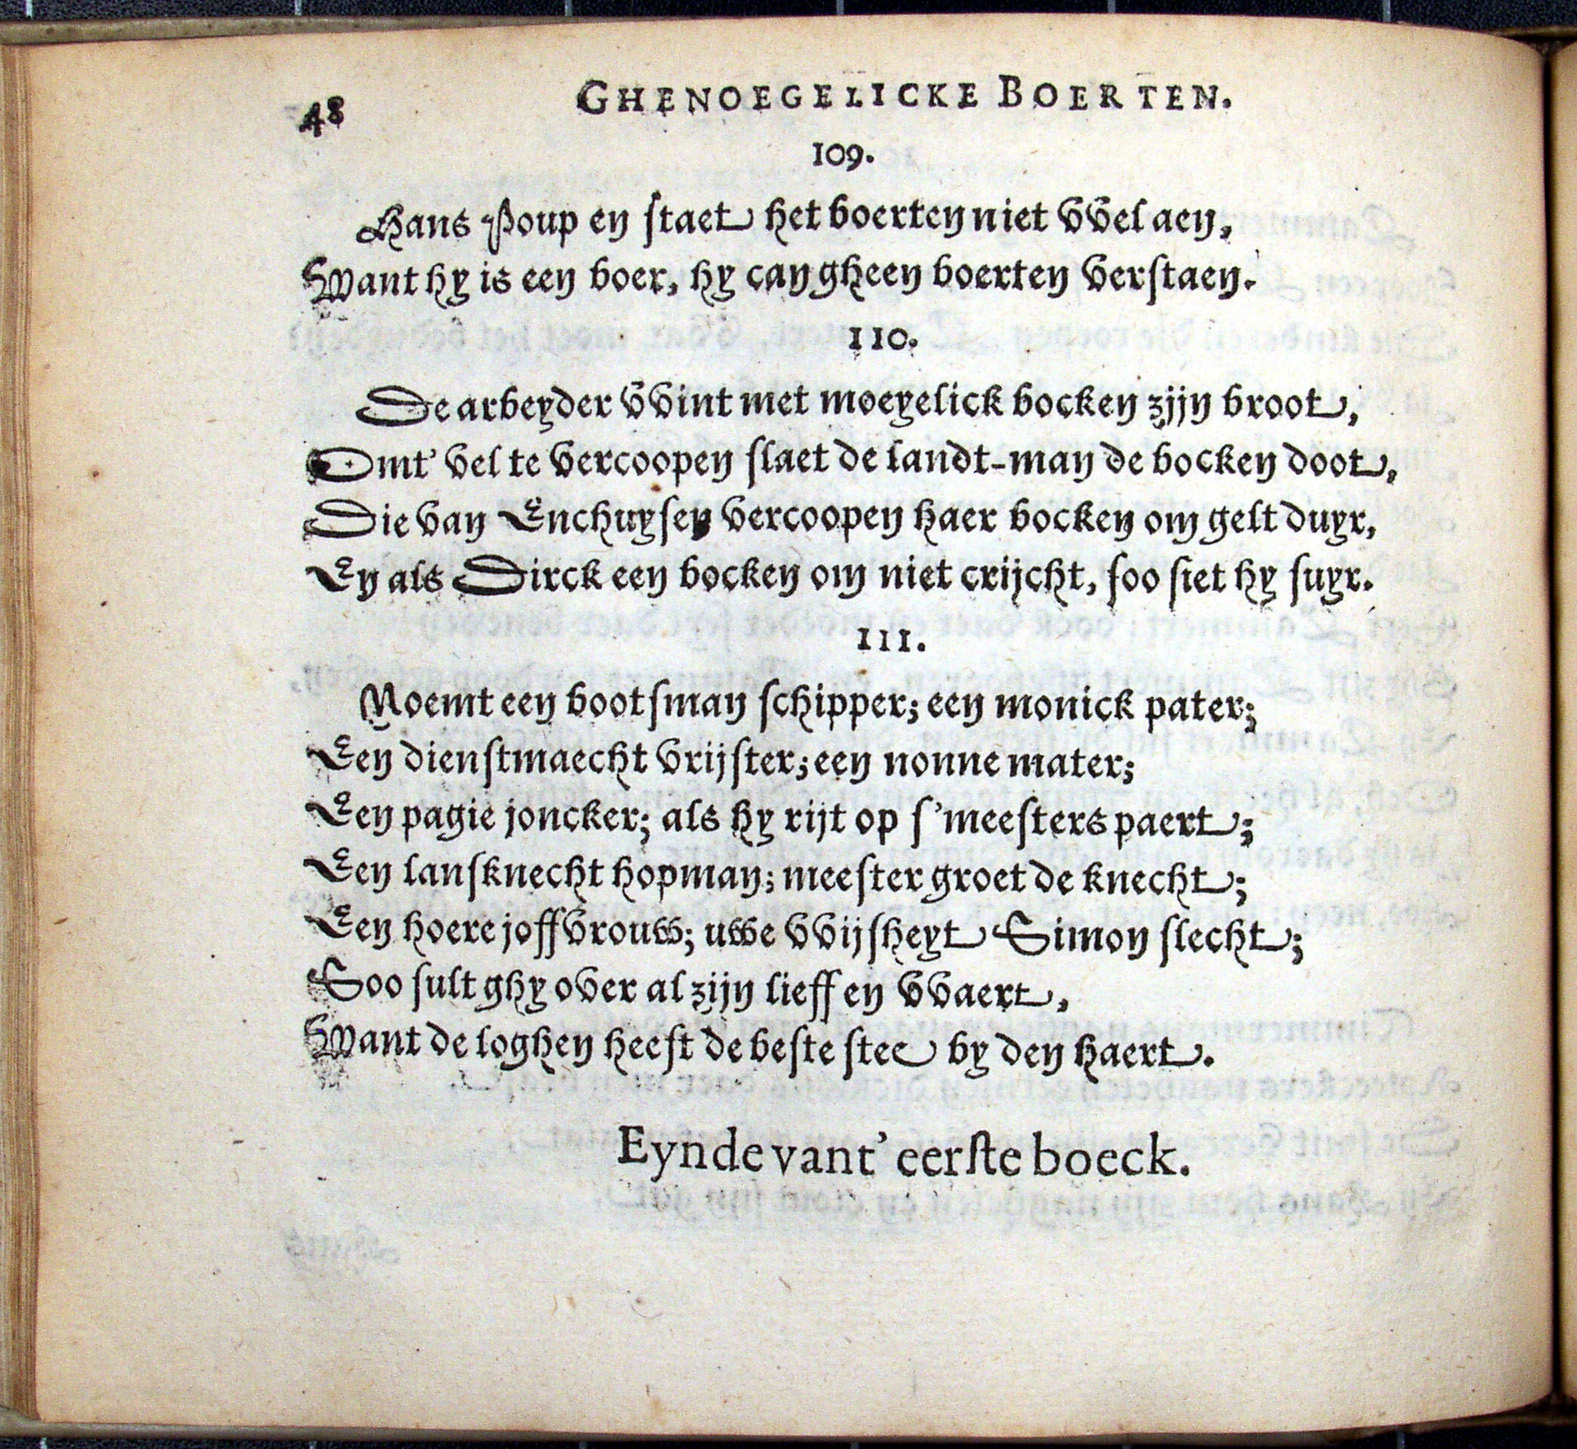 48 GHENOEGELICKE BOERTEN.
109.
Hans Poup en staet het boerten niet vvel aen,
Want hy is een boer, hy can gheen boerten verstaen.
110.
De arbeyder vvint met moeyelick bocken zijn broot,
Omt' vel te vercoopen slaet de landt-man de bocken doot,
Die van Enchuysen vercoopen haer bocken om gelt duyr,
En als Dirck een bocken om niet crijcht, soo siet hy suyr.
111.
Noemt een bootsman schipper; een monick pater;
Een dienstmaecht vrijster; een nonne mater;
Een pagie joncker; als hy rijt op s'meesters paert;
Een lansknecht hopman; meester groet de knecht;
Een hoere joffvrouw; uwe vvijsheyt Simon slecht;
Soo sult ghy over al zijn lieff en vvaert,
Want de loghen heeft de beste stee by den haert.
Eynde vant' eerste boeck.